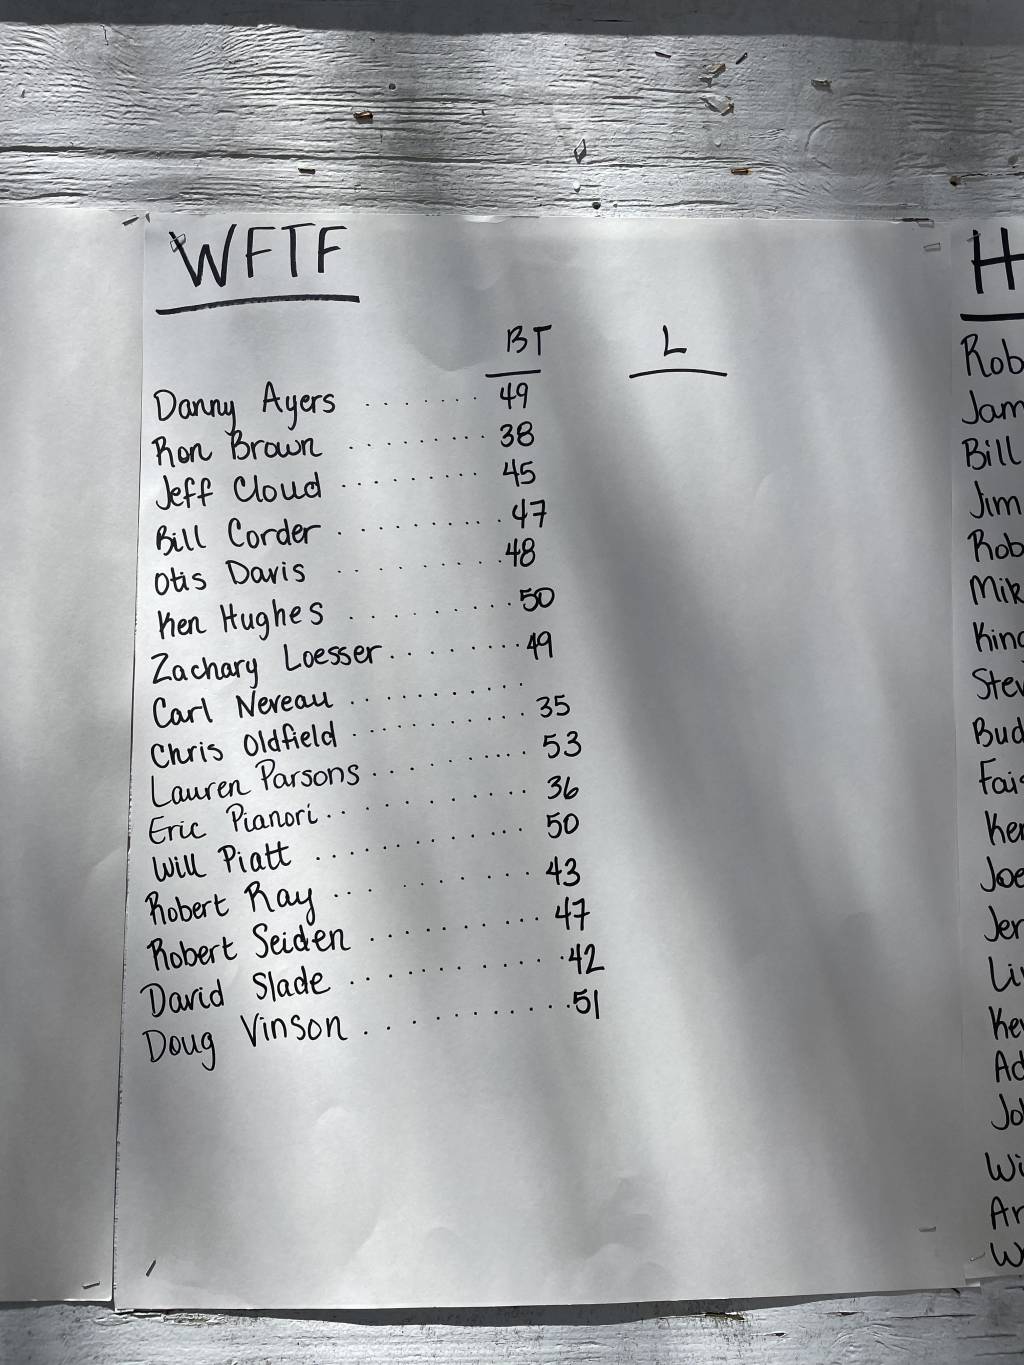 WFTF
BT L
Danny Ayers ........ 49
Ron Brown ......... 38
Jeff Cloud ......... 45
Bill Corder .......... 47
Otis Davis .......... 48
Ken Hughes .......... 50
Zachary Loesser ........ 49
Carl Nereau ..........
Chris Oldfield .......... 35
Lauren Parsons .......... 53
Eric Pianori ............ 36
Will Piatt ............ 50
Robert Ray ........... 43
Robert Seiden .......... 47
David Slade ............ 42
Doug Vinson ........... 51
H
Rob
Jam
Bill
Jim
Rob
Mik
King
Stev
Bud
Fais
Ken
Joe
Jer
Li
Kev
Ad
Jo
Wi
Ar
W